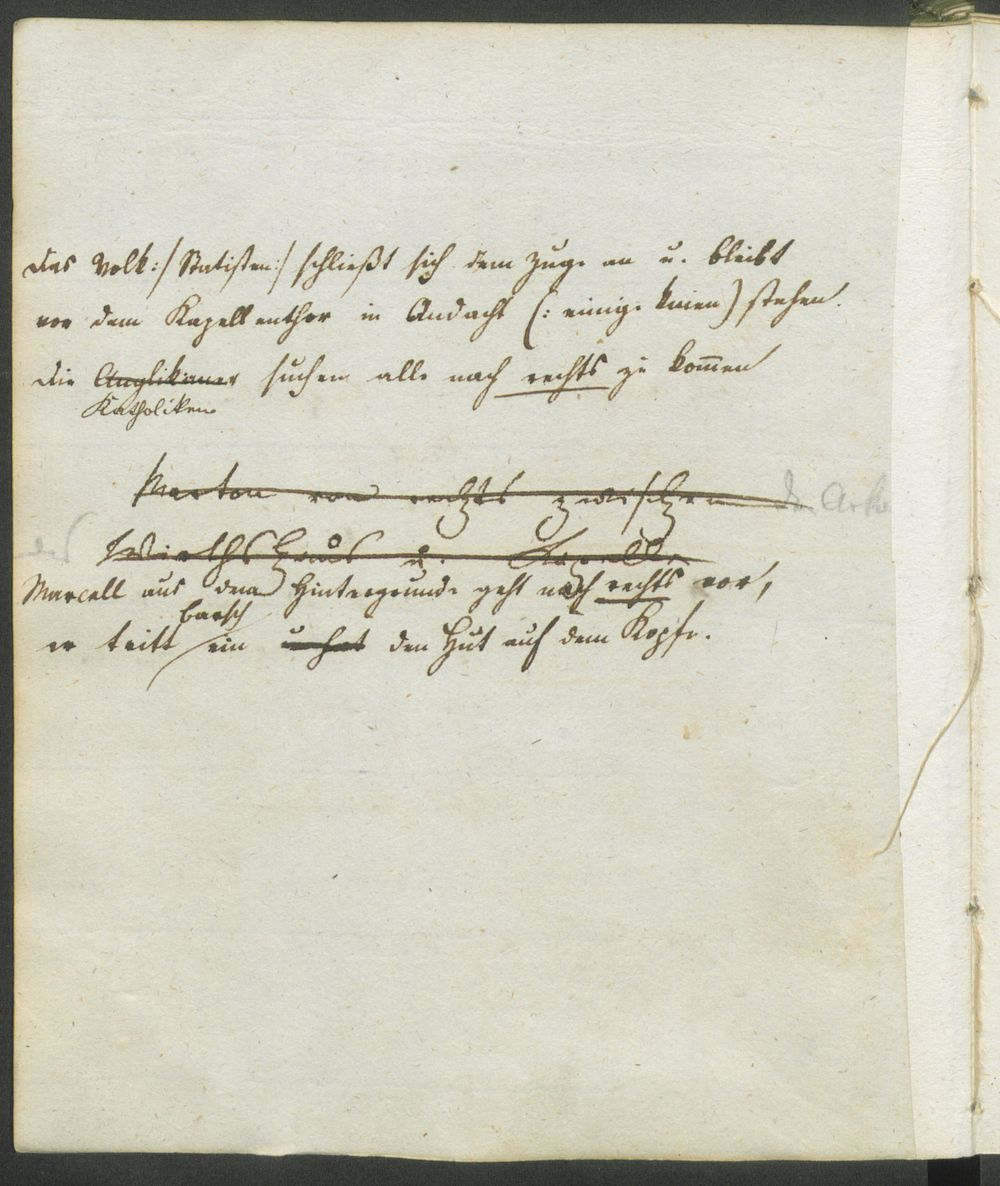 das Volk :/ Statisten :/ schließt sich dem Zuge an u. bleibt
vor dem Kapellenthor in Andacht (: einige knien) stehen.
die Anglikaner suchen alle nach rechts zu kom̅en
Katholiken
Marton von rechts zwischen
Wirthshaus u. Kapelle.
Marcell aus dem Hintergrunde geht nach rechts vor,
barsch
er tritt ein u hat den Hut auf dem Kopfe.